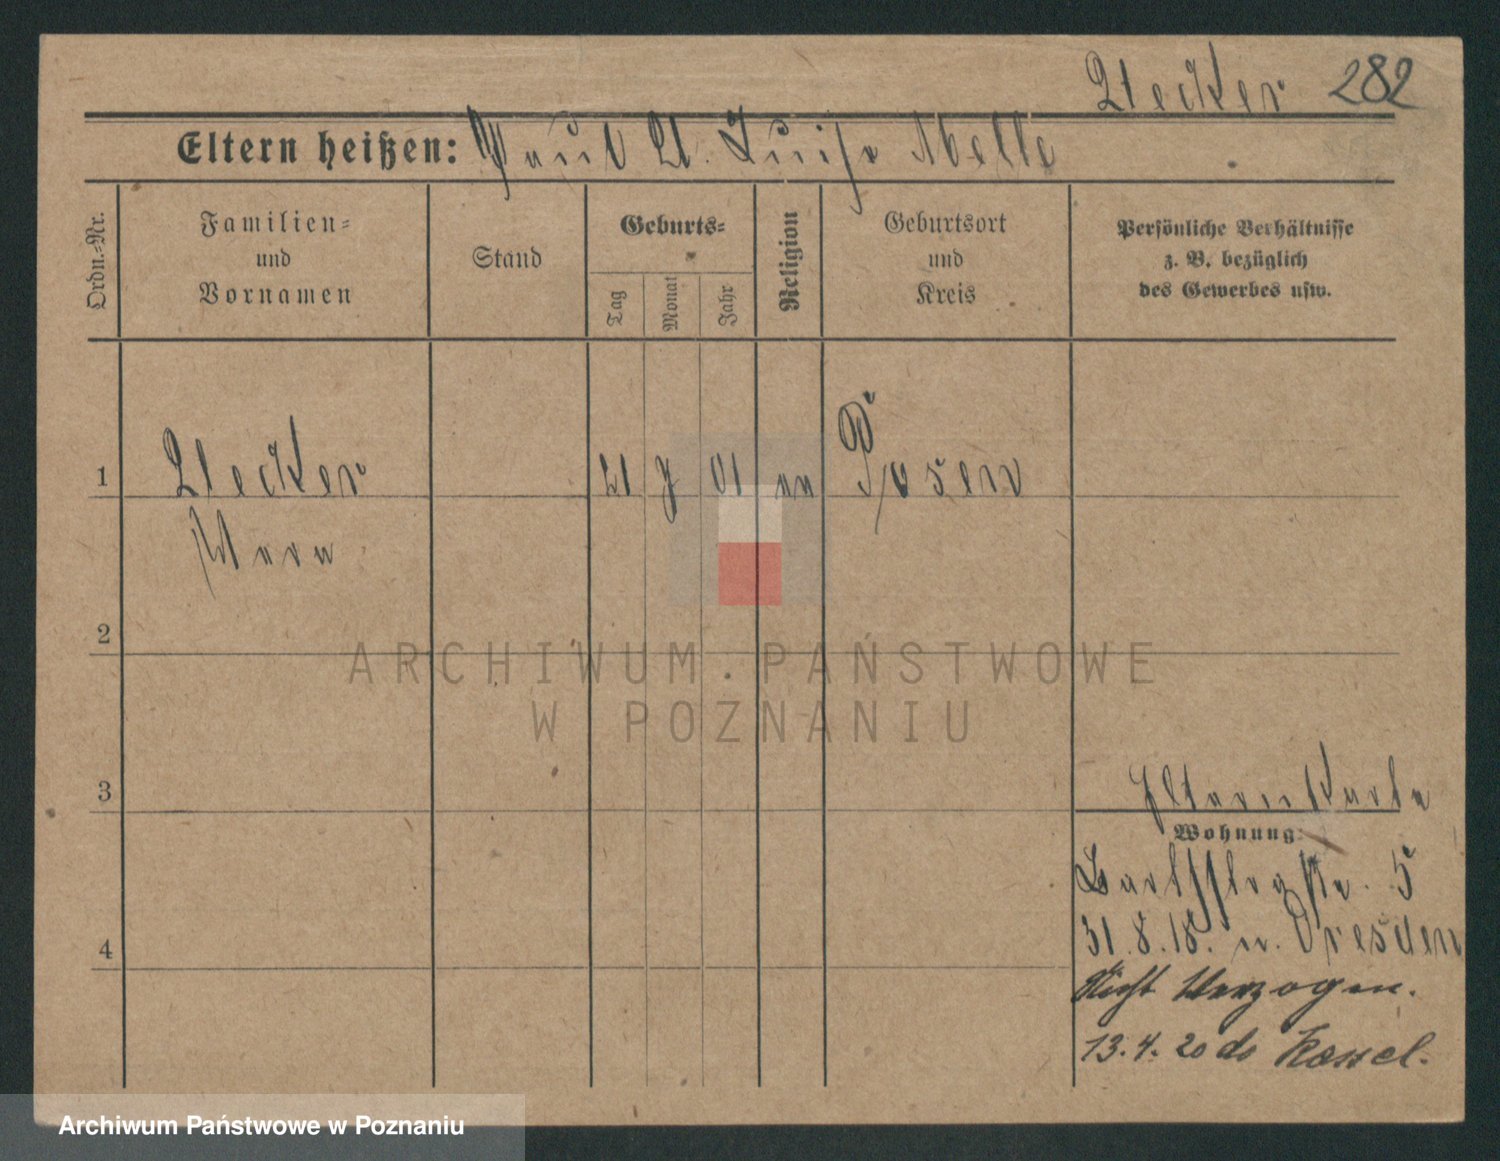 Uecker 282
Eltern heißen: Paul U. Luise Melle
Ordn.-Nr.
Familien-
und
Vornamen
Stand
Geburts-
Tag
Monat
Jahr
Religion
Geburtsort
und
Kreis
Persönliche Verhältnisse
z. B. bezüglich
des Gewerbes usw.
1 Uecker 21 7 01 Posen
2
3
4
Elternkarte
Wohnung:
5
31.8.18. n. Dresden
Nicht Verzogen.
13.4.20 do Kassel.
ARCHIWUM PAŃSTWOWE
W POZNANIU
Archiwum Państwowe w Poznaniu